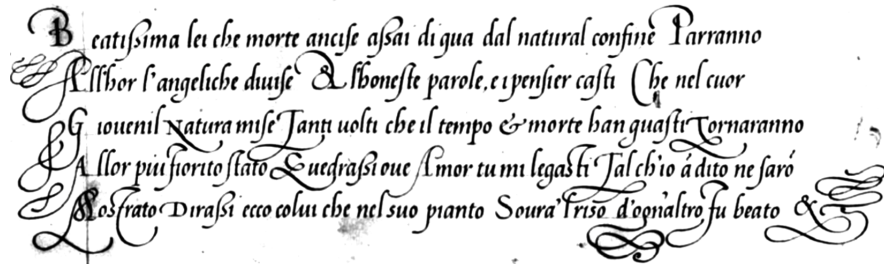 Beatissima lei che morte ancise assai di qua dal natural confine Parranno
Allhor l'angeliche divise & l'honeste parole, e i pensier casti Che nel cuor
Giovenil Natura mise Tanti volti che il tempo & morte han guasti Tornaranno
Allor piu fiorito stato Et vedrassi ove Amor tu mi legasti Tal ch'io á dito ne saró
Mostrato Dirassi ecco colui che nel suo pianto Soura'l riso d'ogn'altro fu beato &